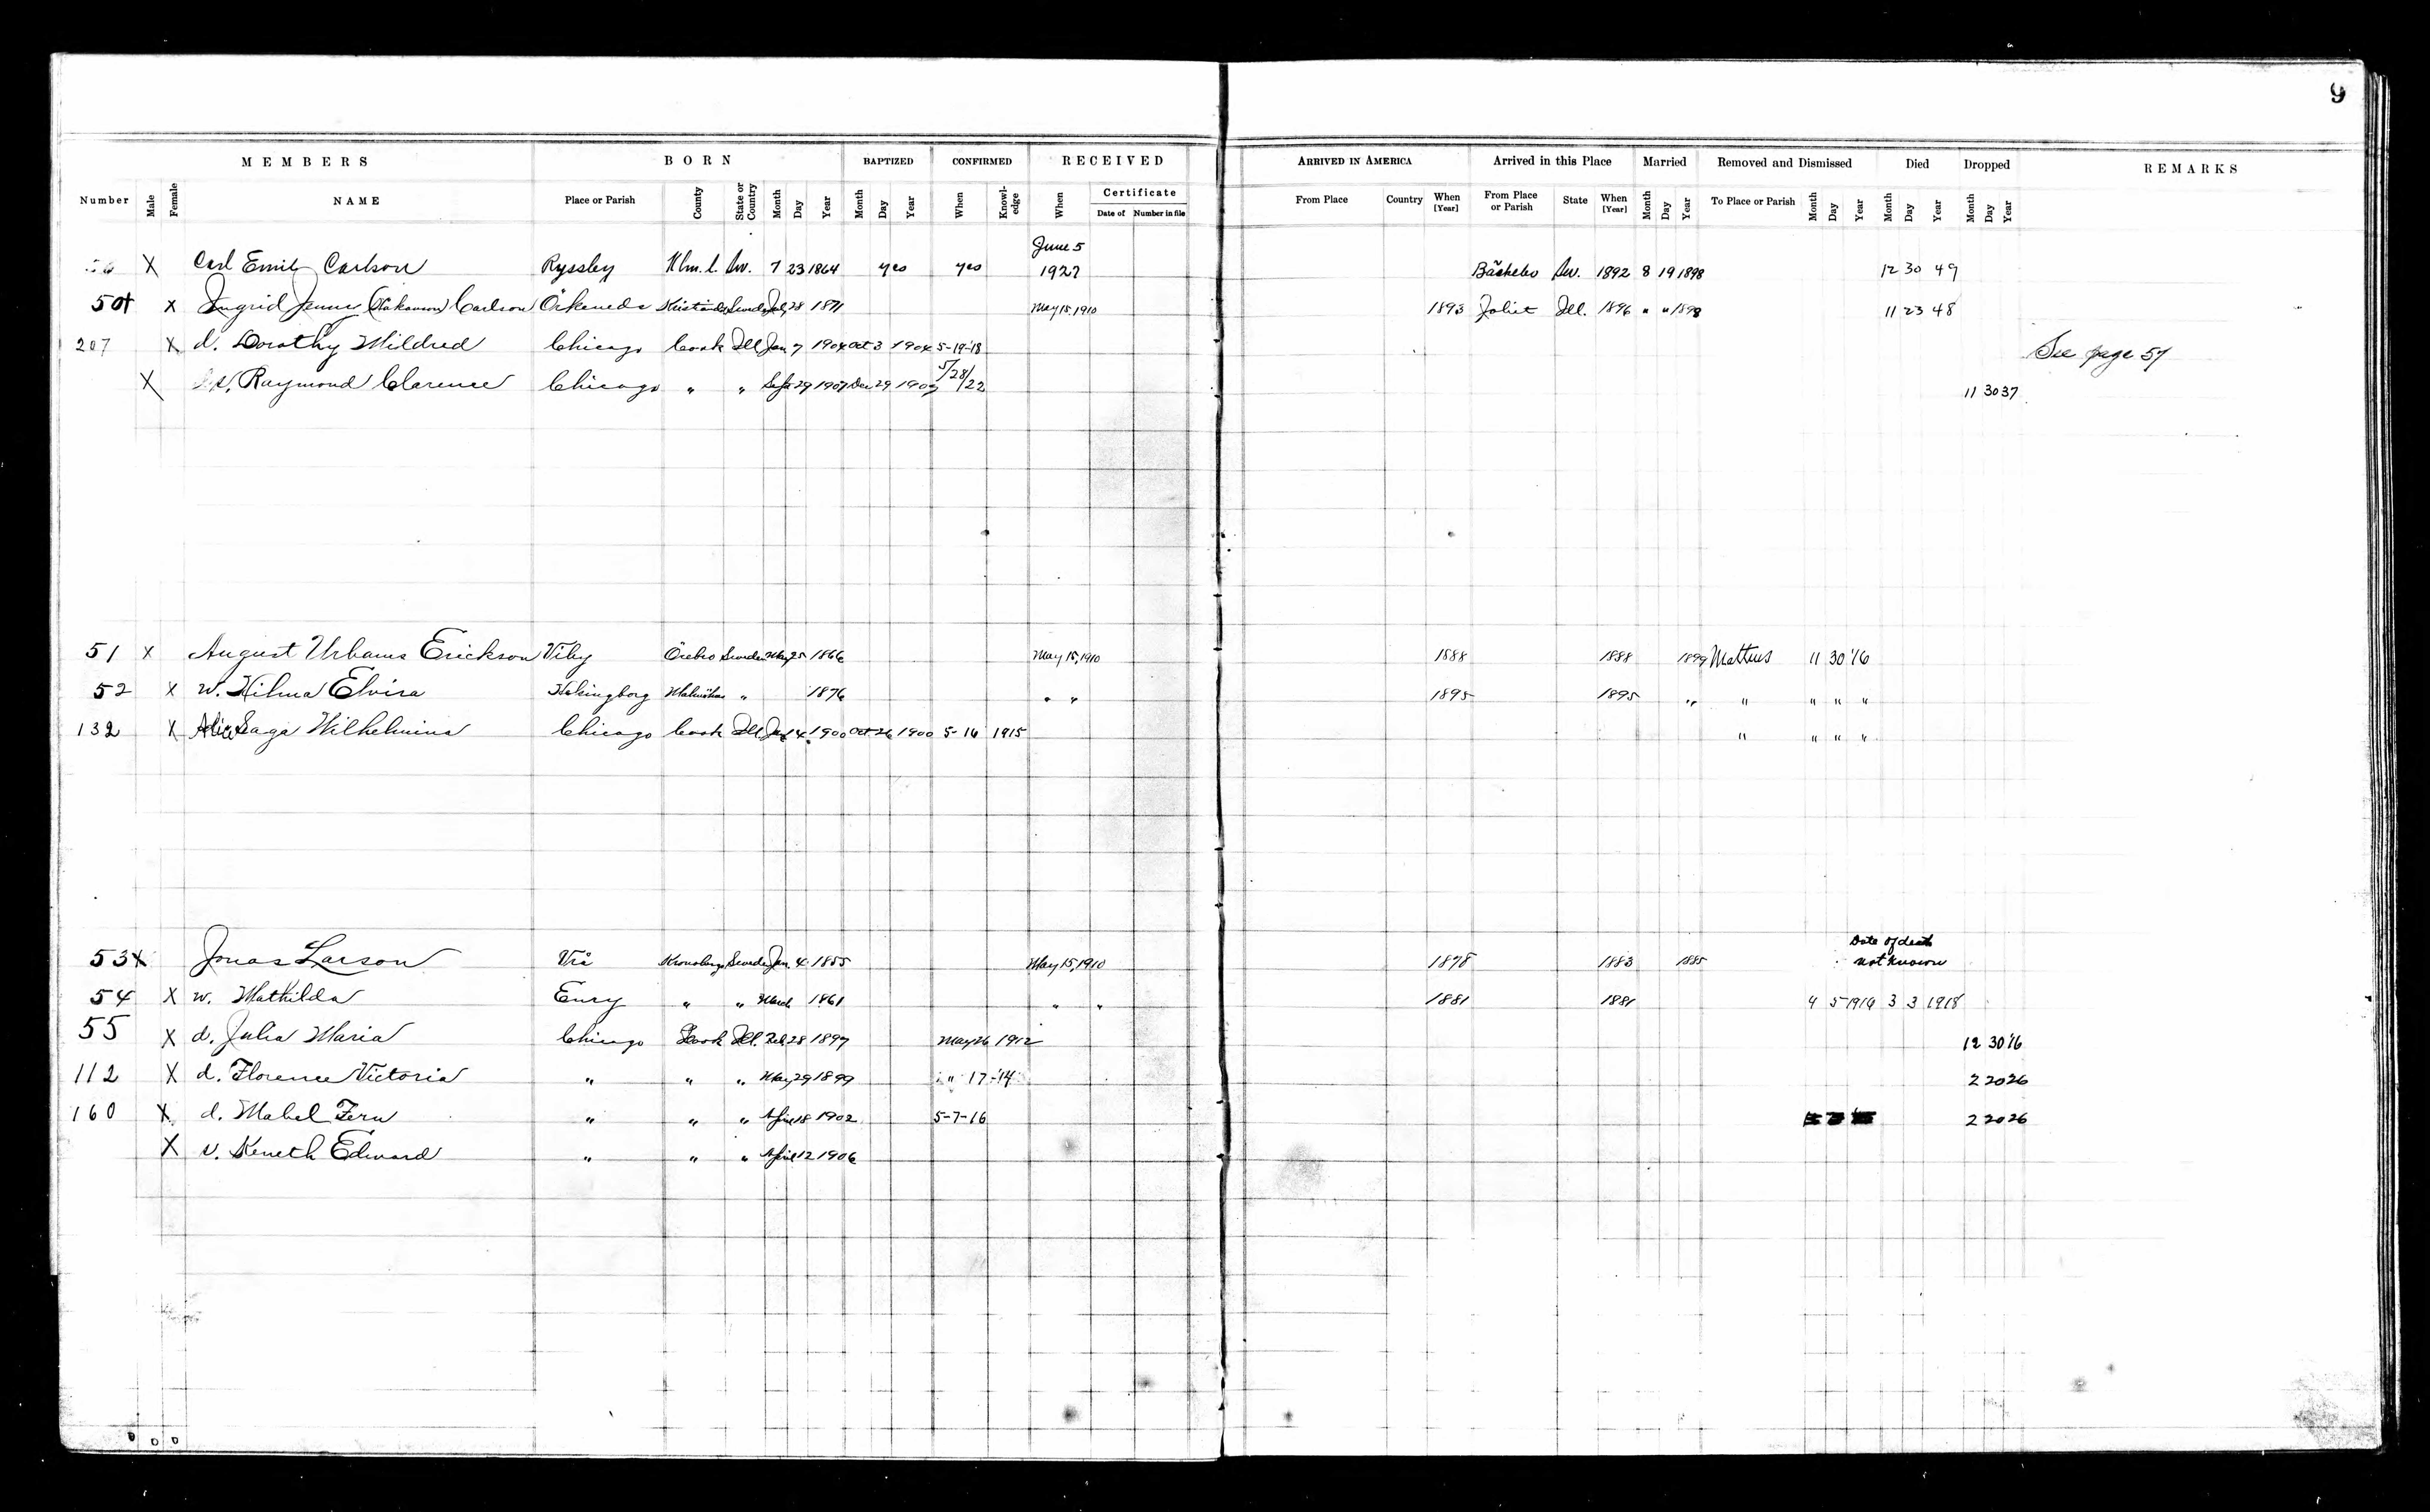 9
MEMBERS BORN BAPTIZED CONFIRMED RECEIVED ARRIVED IN AMERICA Arrived in this Place Married Removed and Dismissed Died Dropped REMARKS
Number Male Female NAME Place or Parish County State or Country Month Day Year Month Day Year When Knowl-edge When Certificate From Place Country When [Year] From Place or Parish State When [Year] Month Day Year To Place or Parish Month Day Year Month Day Year Month Day Year
Date of Number in file
June 5
X Carl Emil Carlson Ryssby Klm. l. Sw. 7 23 1864 yes yes 1922 Sw. 1892 8 19 1898 12 30 49
50 X Ingrid Jennie (Håkanson) Carlson Örkeneds Sweden July 28 1871 May 15, 1910 1893 Joliet Ill. 1896 " " 1898 11 23 48
207 X d. Dorothy Mildred Chicago Cook Ill Jan 7 1904 Oct 3 1904 5-19-18 See page 57
X s. Raymond Clarence Chicago " " Sept 29 1907 Dec 29 1907 5/28/22 11 30 37
51 X August Urbanus Erickson Viby Örebro Sweden May 25 1866 May 15, 1910 1888 1888 1899 Matteus 11 30 '16
52 X w. Hilma Elvira Malmöhus " 1876 " " 1895 1895 " " " " "
132 X Alice Saga Wilhelmina Chicago Cook Ill. 14 1900 Oct 26 1900 5-16 1915 " " " "
Date of death
53 X Jonas Larson Kronobergs Sweden Jan. 4 1855 May 15, 1910 1878 1883 1885 not known
54 X w. Mathilda " " March 1861 " " 1881 1881 4 5 1916 3 3 1918
55 X d. Julia Maria Chicago Cook Ill. Feb 28 1897 May 26 1912 12 30 '16
112 X d. Florence Victoria " " " May 29 1899 " 17-'14 2 20 26
160 X d. Mabel Fern " " " April 18 1902 5-7-16 2 20 26
X s. Keneth Edward " " " April 12 1906